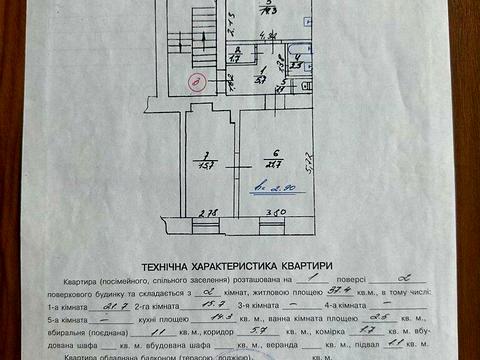 5
14.3
2.15
4.32
2
1.7
1
5.7
4
2.5
д
7
15.7
6
21.7
5.72
h = 2.90
2.78
3.80
ТЕХНІЧНА ХАРАКТЕРИСТИКА КВАРТИРИ
Квартира (посімейного, спільного заселення) розташована на 1 поверсі 2
поверхового будинку та складається з 2 кімнат, житловою площею 37.4 кв. м., в тому числі:
1-а кімната 21.7 2-га кімната 15.7 3-я кімната – 4-а кімната –
5-а кімната – кухні площею 14.3 кв. м., ванна кімната площею 2.5 кв. м.,
вбиральня (поєднана) 1.1 кв. м., коридор 5.7 кв. м., комірка 1.7 кв. м. вбу-
дована шафа – кв. м. вбудована шафа – кв. м., веранда – кв. м., підвал 1.1 кв. м.
Квартира обладнана балконом (терасою, лоджією) кв. м.